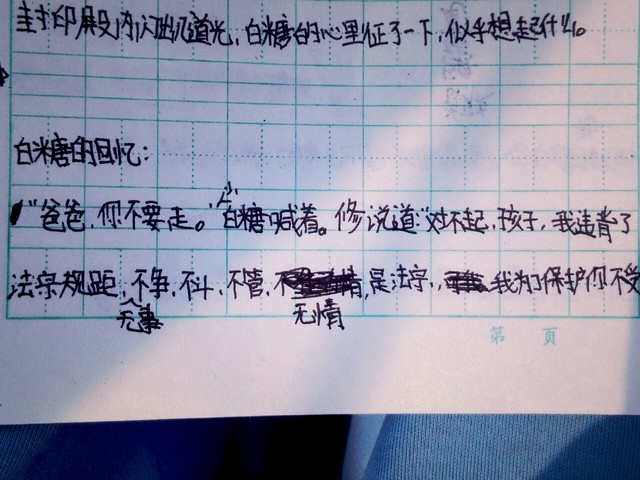 封印殿内闪出几道光,白糖的心里怔了一下,似乎想起什么。
白糖的回忆:
"爸爸,你不要走。"小白糖喊着。修说道:"对不起,孩子,我违背了
法宗规距,不争,不斗,不管,是法宗,我为了保护你不受
无事
无情
第 页